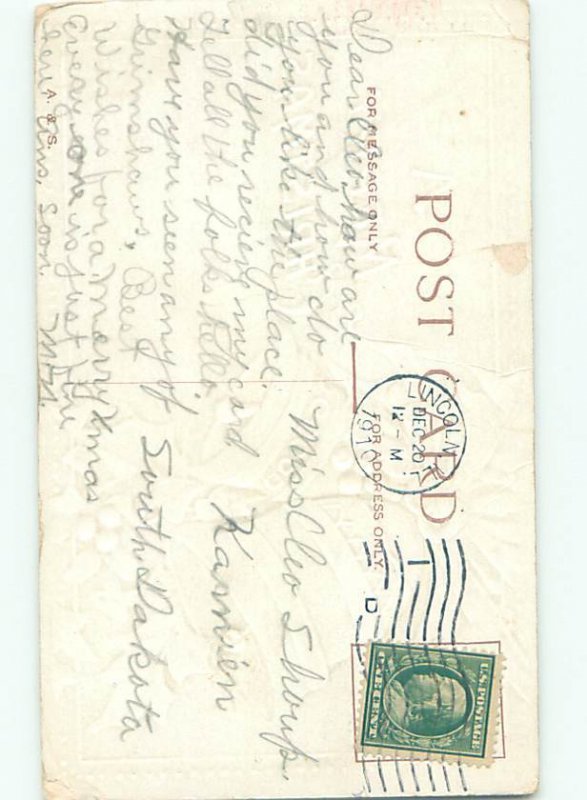 POST CARD
FOR MESSAGE ONLY
FOR ADDRESS ONLY.
LINCOLN
DEC 20
12 - M
1910
D
1
U.S. POSTAGE
ONE CENT
Dear Cleo, how are
you and how do
you like the place.
did you recieve my card
Tell all the folks hello.
Have you seen any of
Grimshaws, Best
Wishes for a Merry Xmas
Every one is just fine
Soon.
A. & S.
Miss Cleo Shoup
South Dakota